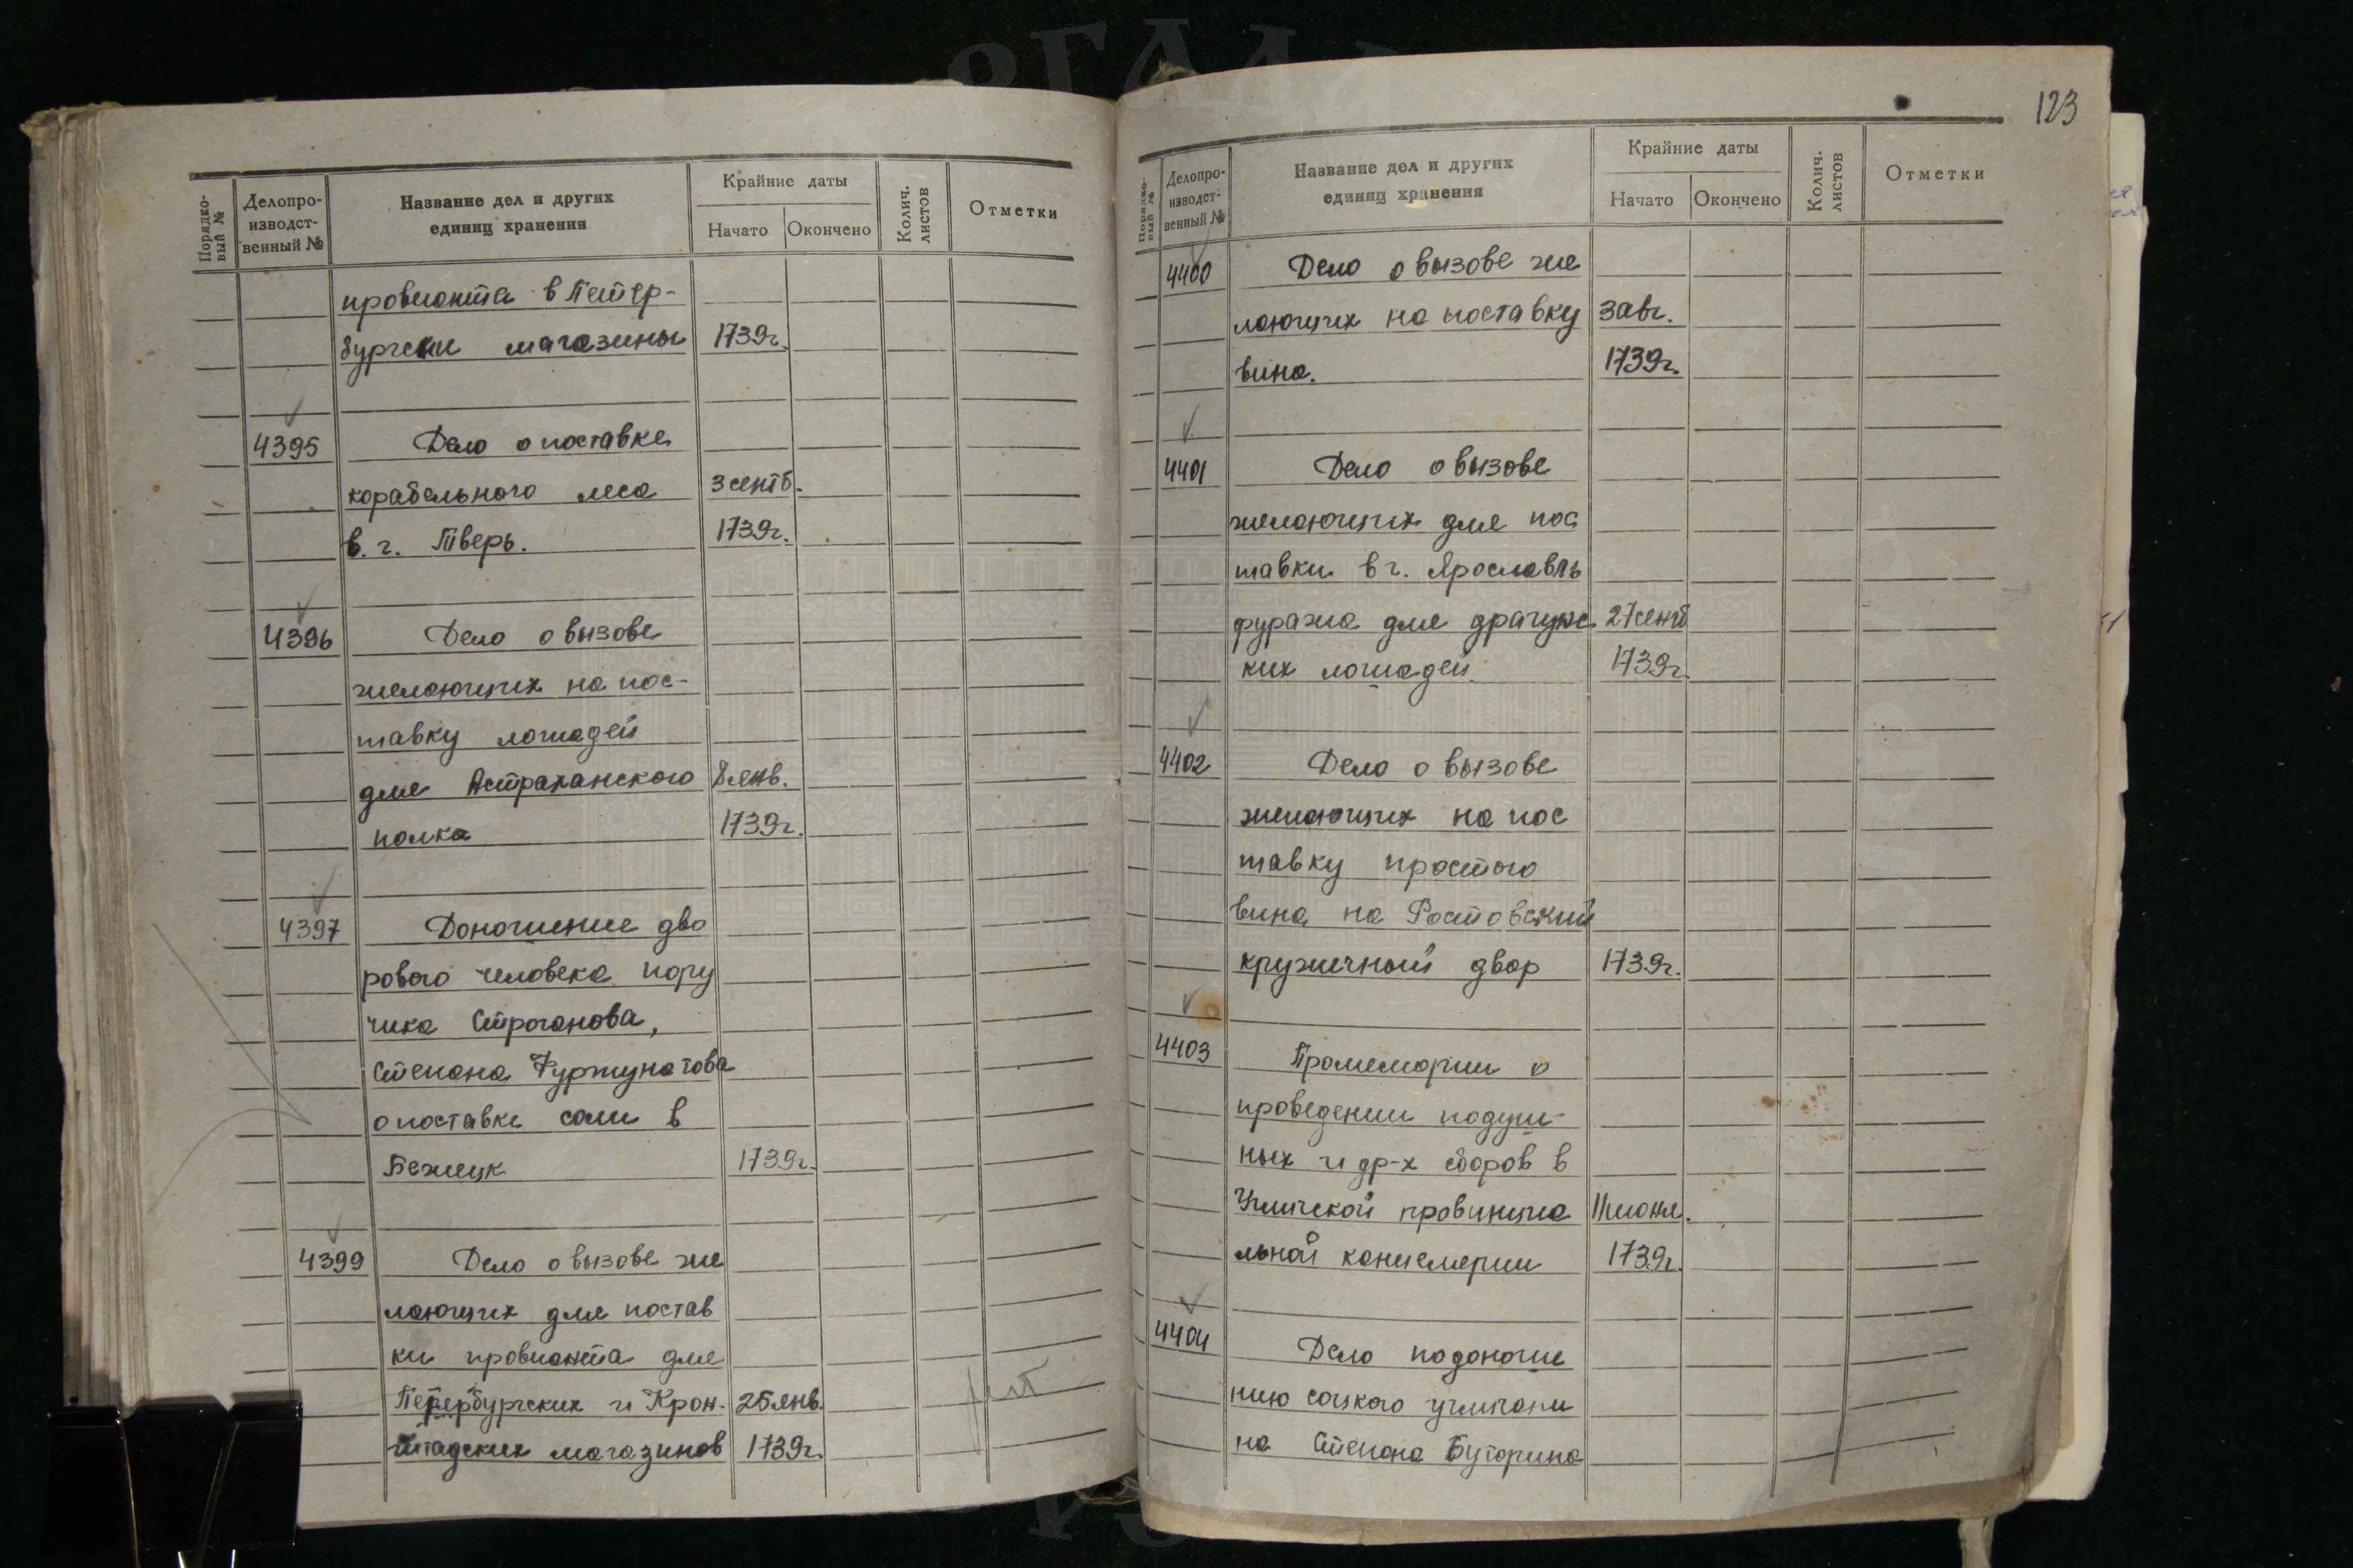 Порядко-
вый №
Делопро-
изводст-
венный №
Название дел и других
единиц хранения
Крайние даты
Начато Окончено
Колич.
листов
Отметки
провианта в Петер-
бургски магазины 1739г.
4395 Дело о поставке
корабельного леса 3 сентб.
в. г. Тверь. 1739г.
4396 Дело о вызове
желающих на пос-
тавку лошадей
для Астраханского 8 янв.
полка 1739г.
4397 Доношение дво
рового человека пору
чика Строганова,
Степана Фуртунатова
о поставке соли в
Бежецк 1739г.
4399 Дело о вызове же
лающих для постав
ки провианта для
Петербургских и Крон- 25 янв.
штадских магазинов 1739г.
123
Порядко-
вый №
Делопро-
изводст-
венный №
Название дел и других
единиц хранения
Крайние даты
Начато Окончено
Колич.
листов
Отметки
4400 Дело о вызове же
лающих на поставку 3 авг.
вина. 1739г.
4401 Дело о вызове
желающих для пос
тавки в г. Ярославль
фуража для драгунс 27 сентб
ких лошадей. 1739г.
4402 Дело о вызове
желающих на пос
тавку простого
вина на Ростовский
кружечный двор 1739г.
4403 Промемории о
проведении подуш-
ных и др-х сборов в
Угличской провинциа 11 июня.
льной канцелярии 1739г.
4404 Дело по доноше
нию соцкого угличани
на Степана Буторина